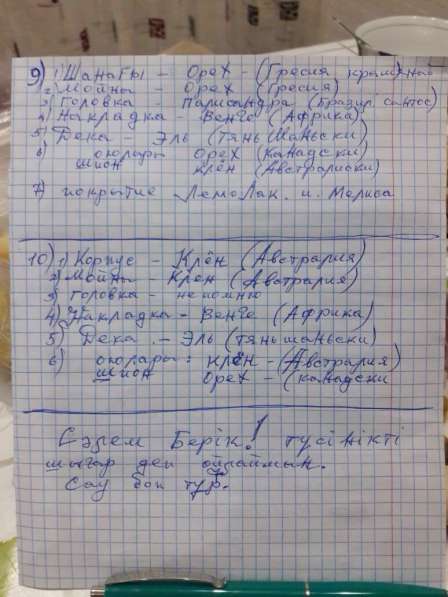 9) 1) Шанағы - Орех - (Гресия,
2) Мойны - Орех (Гресия)
3) Головка - Палисандра (Бразил сантос)
4) Накладка - Венге (Африка)
5) Дека - Эль (Тянь Шаньски)
6) оюлары Орех (Канадски)
шион Клён (Австралиски)
7) покрытие ЛемоЛак. и. Мелиса
10) 1) Корпус - Клён (Австрария)
2) Мойны - Клен (Австрария)
3) головка - непомню
4) Накладка - Венге (Африка)
5) Дека - Эль (тяньшаньски)
6) оюлары: клён - (Австрария)
шион Орех - (канадски
Сәлем Берік! түсінікті
шығар деп ойлаймын.
Сау бол тұр.